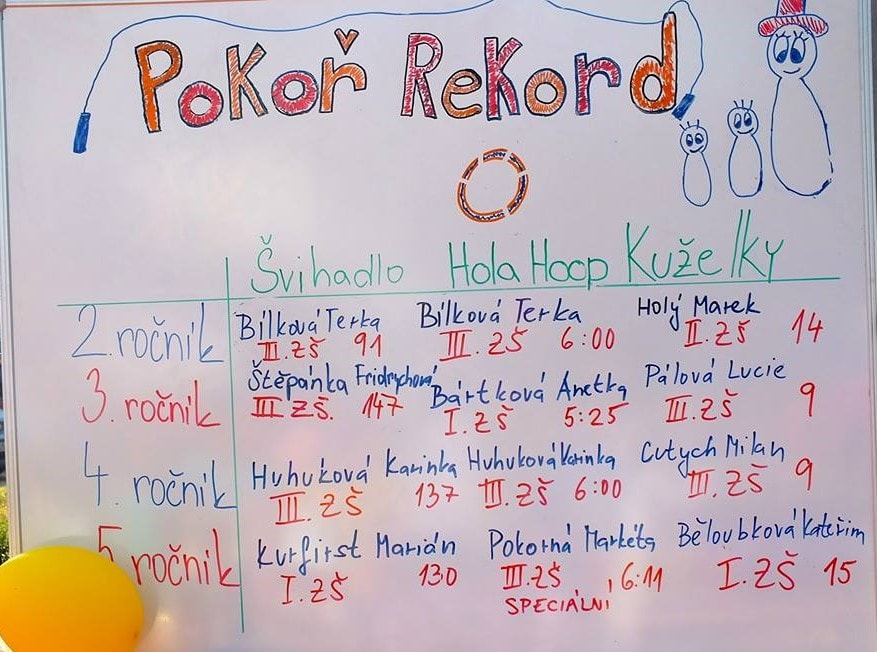 Pokoř Rekord
Švihadlo Hola Hoop Kuželky
2. ročník Bílková Terka Bílková Terka Holý Marek
III. ZŠ 91 III. ZŠ 6:00 II. ZŠ 14
3. ročník Štěpánka Fridrychová Bártková Anetka Pálová Lucie
III ZŠ. 147 I. ZŠ 5:25 III. ZŠ 9
4. ročník Huhuková Karinka Huhuková Karinka Cutych Milan
III. ZŠ 137 III. ZŠ 6:00 III. ZŠ 9
5. ročník Kurfirst Marián Pokorná Markéta Běloubková Kateřin
I. ZŠ 130 III. ZŠ 6:11 I. ZŠ 15
SPECIÁLNÍ